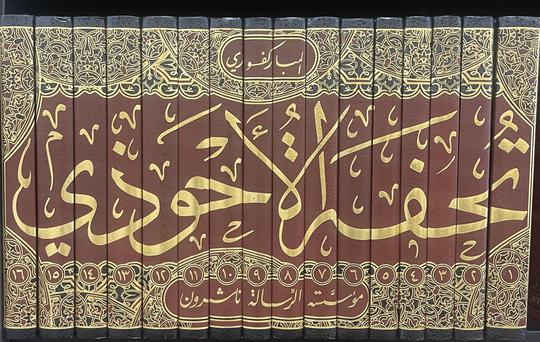 المباركفوري
تحفة الأحوذي
١ ٢ ٣ ٤ ٥ ٦ ٧ ٨ ٩ ١٠ ١١ ١٢ ١٣ ١٤ ١٥ ١٦
مؤسسة الرسالة ناشرون